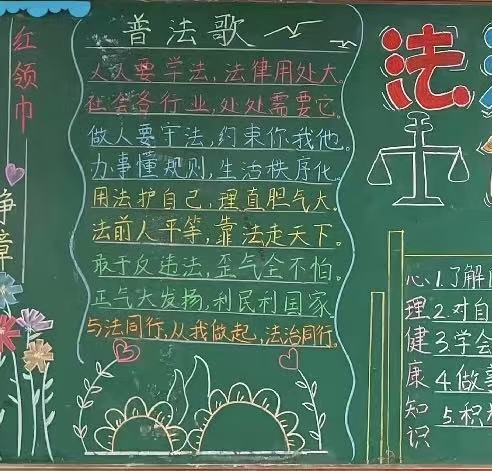 红领巾
争章
普法歌
人人要学法,法律用处大。
社会各行业,处处需要它。
做人要守法,约束你我他。
办事懂规则,生活秩序化。
用法护自己,理直胆气大。
法前人平等,靠法走天下。
敢于反违法,歪气全不怕。
正气大发扬,利民利国家
与法同行,从我做起,法治同行。
法
心理健康知识
1.了解
2.对自
3.学会
4.做
5.积